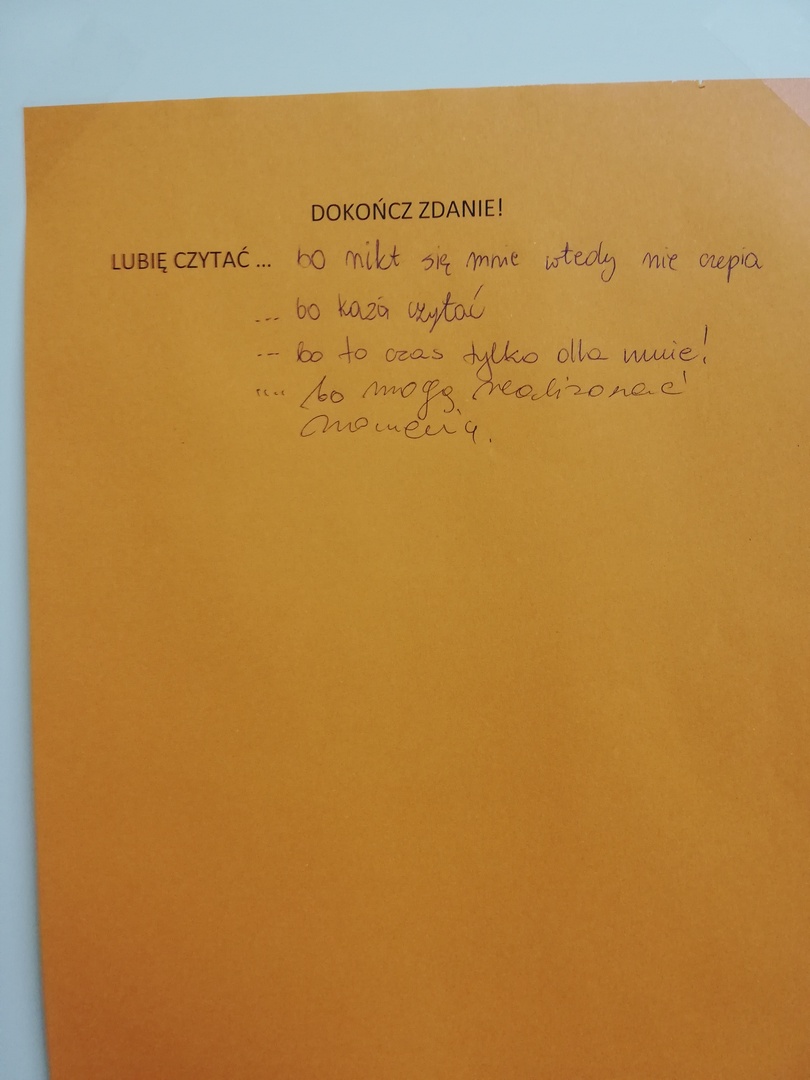 DOKOŃCZ ZDANIE!
LUBIĘ CZYTAĆ ... bo nikt się mnie wtedy nie czepia
... bo każą czytać
... bo to czas tylko dla mnie!
.... bo mogę realizować
marzenia.